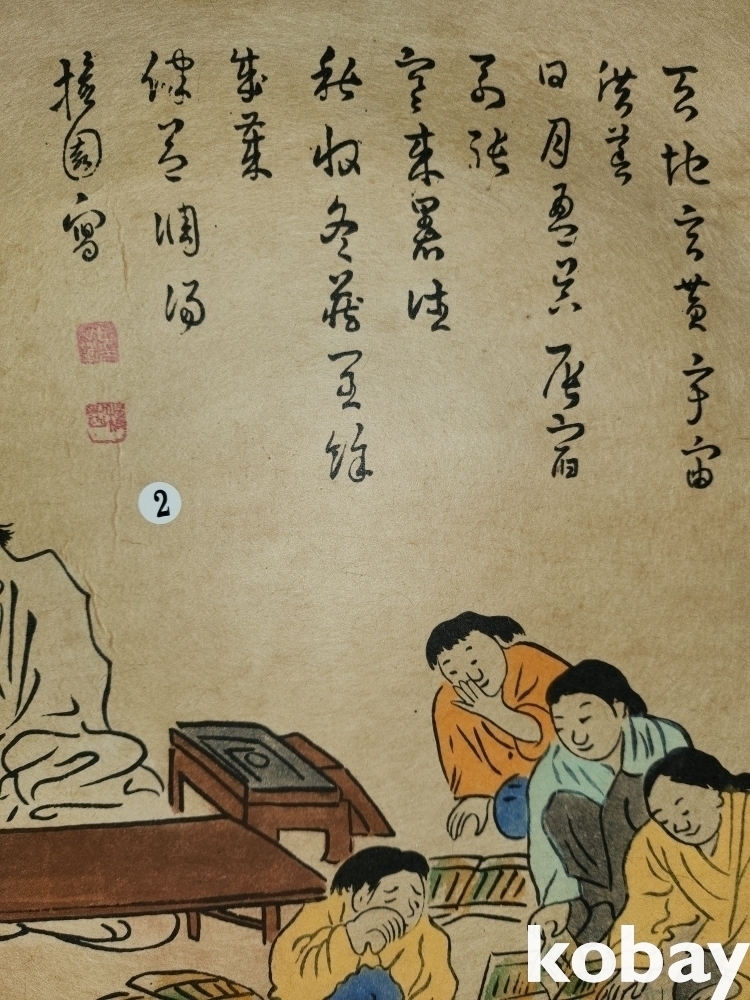 天地玄黃宇宙
洪荒
日月盈昃辰宿
列張
寒來暑往
秋收冬藏閏餘
成歲
律呂調陽
檀園寫
2
kobay